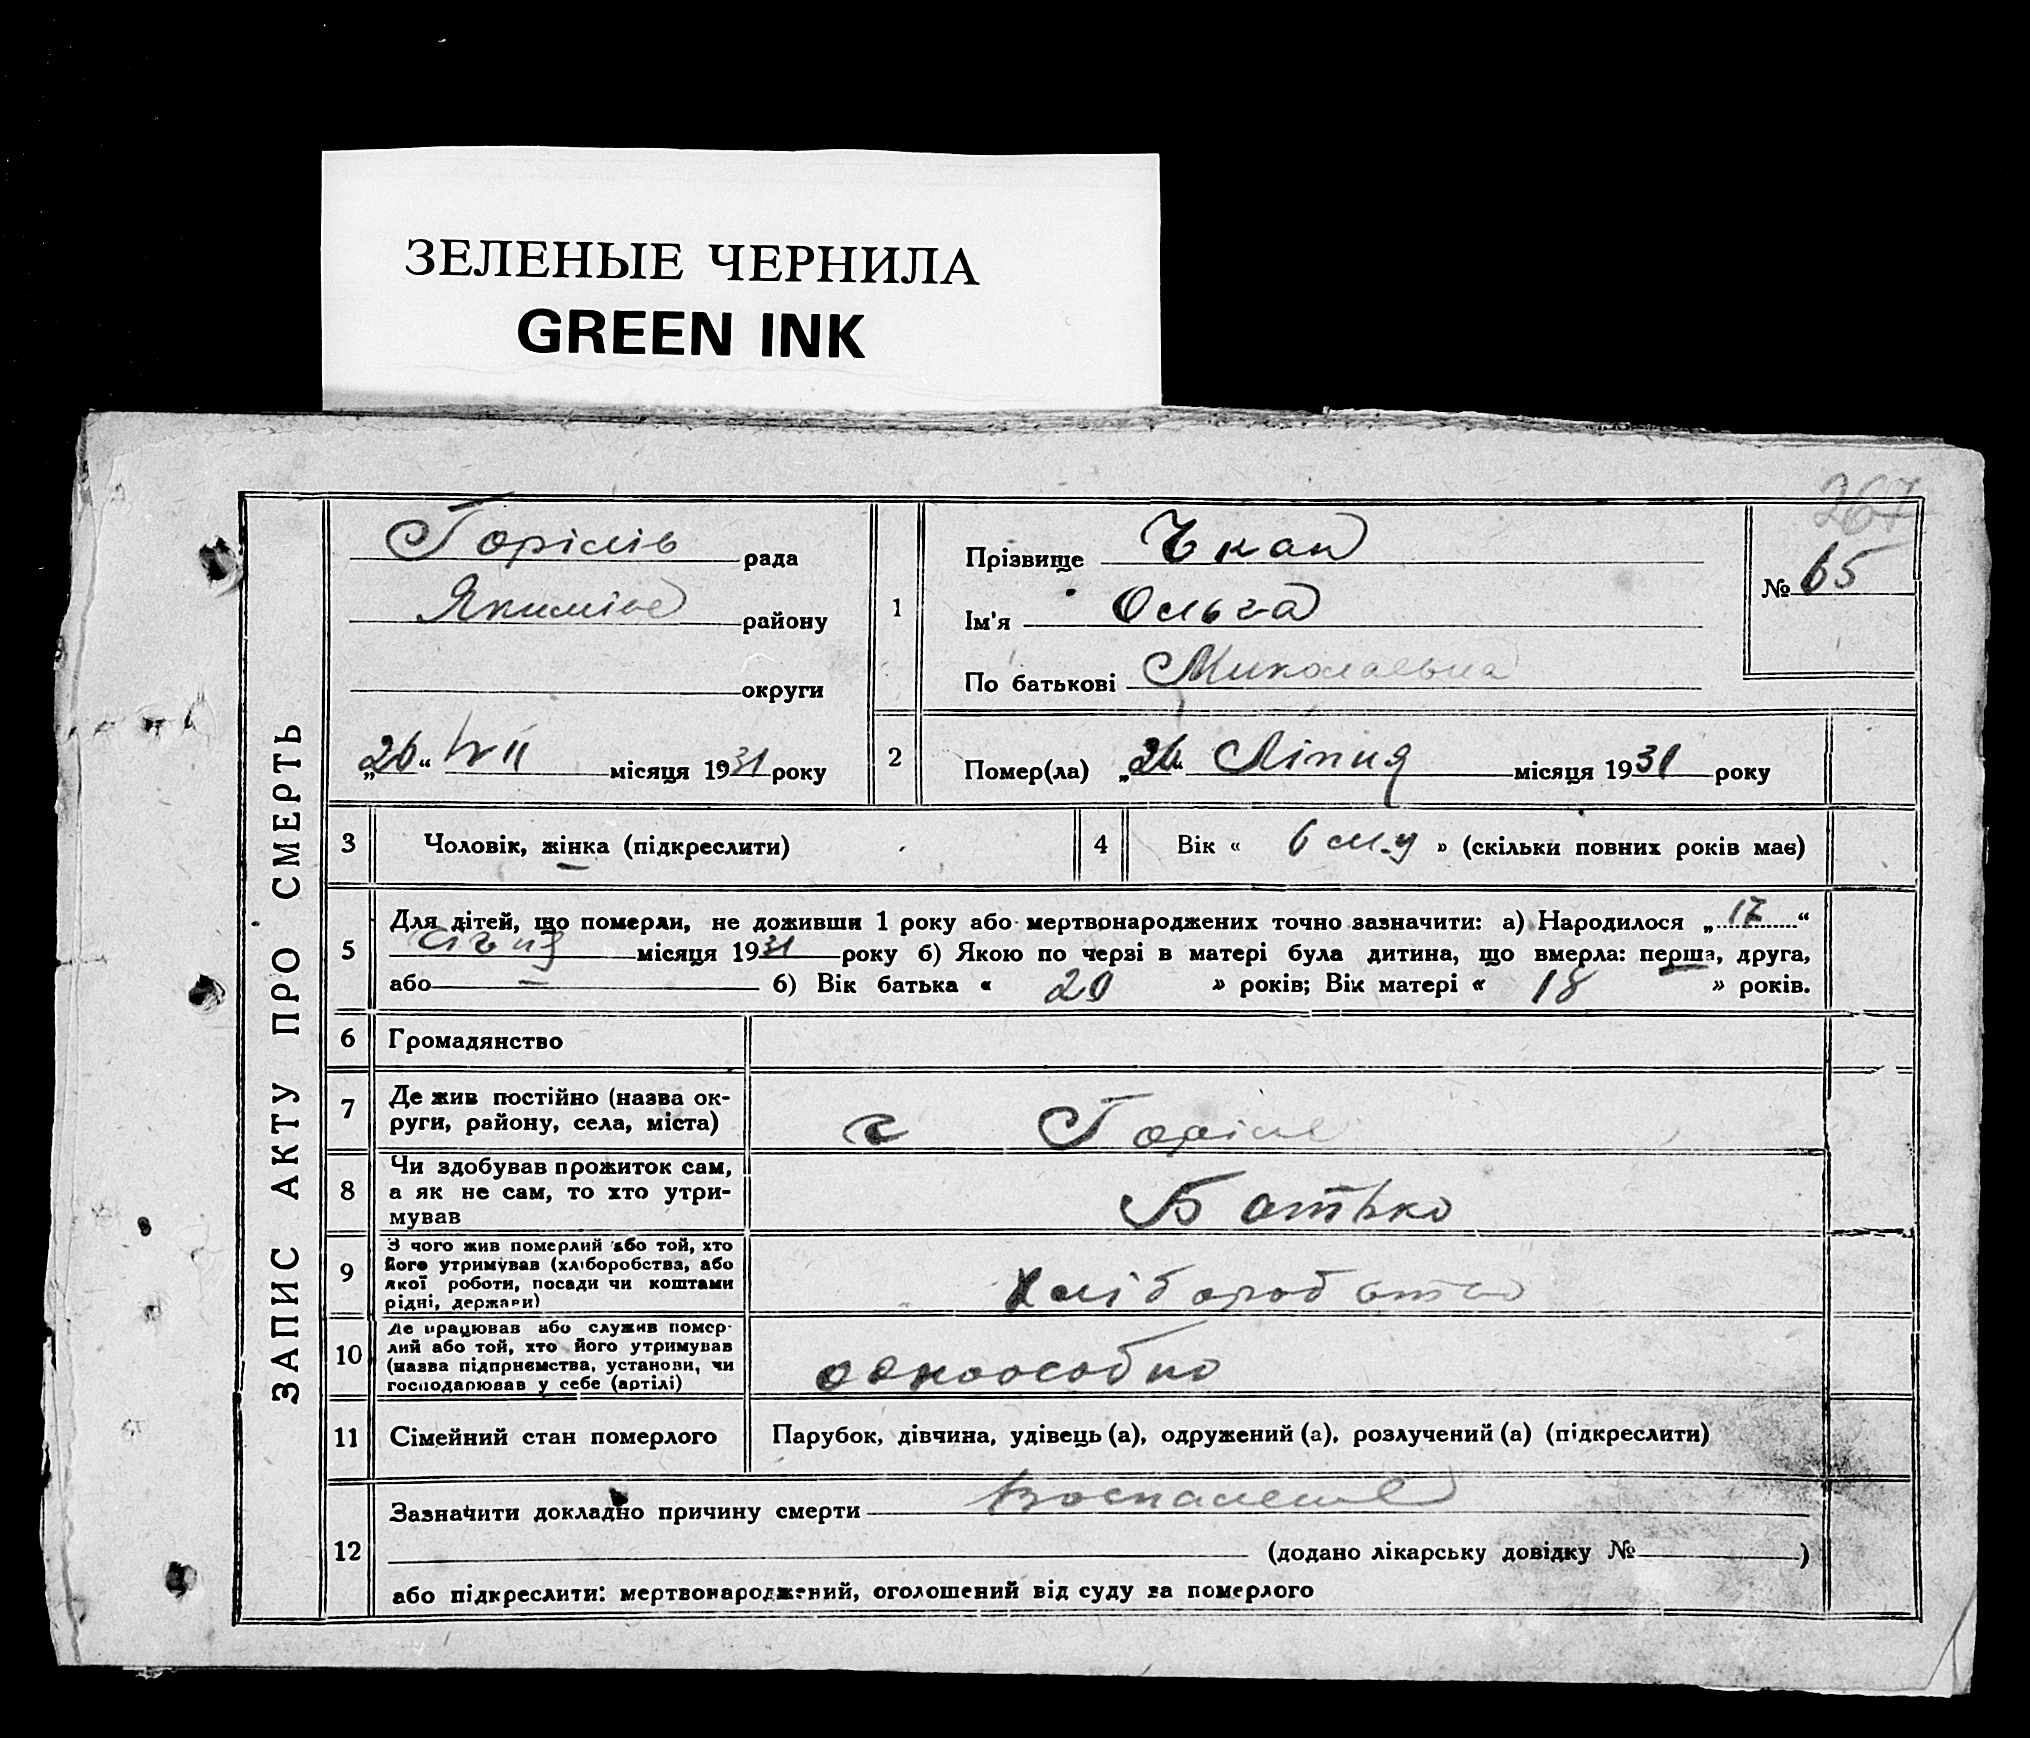 ЗЕЛЕНЫЕ ЧЕРНИЛА
GREEN INK
267
ЗАПИС АКТУ ПРО СМЕРТЬ
Горілів рада
району
округи
„26“ VII місяця 1931 року
1
Прізвище Чкан
Ім'я Ольга
По батькові Миколаевна
№ 65
2
Помер(ла) „26“ Ліпня місяця 1931 року
3
Чоловік, жінка (підкреслити)
4
Вік « 6 » (скільки повних років має)
5
Для дітей, що померли, не доживши 1 року або мертвонароджених точно зазначити: а) Народилося „17“
місяця 1931 року б) Якою по черзі в матері була дитина, що вмерла: перша, друга,
або — б) Вік батька « 20 » років; Вік матері « 18 » років.
6
Громадянство
7
Де жив постійно (назва ок-
руги, району, села, міста)
с Горіле
8
Чи здобував прожиток сам,
а як не сам, то хто утри-
мував
Батько
9
З чого жив померлий або той, хто
його утримував (хліборобства, або
якої роботи, посади чи коштами
рідні, держави)
хліборобство
10
Де працював або служив помер-
лий або той, хто його утримував
(назва підприємства, установи, чи
господарював у себе (артілі)
одноособно
11
Сімейний стан померлого
Парубок, дівчина, удівець (а), одружений (а), розлучений (а) (підкреслити)
12
Зазначити докладно причину смерти Воспаление
(додано лікарську довідку № )
або підкреслити: мертвонароджений, оголошений від суду за померлого